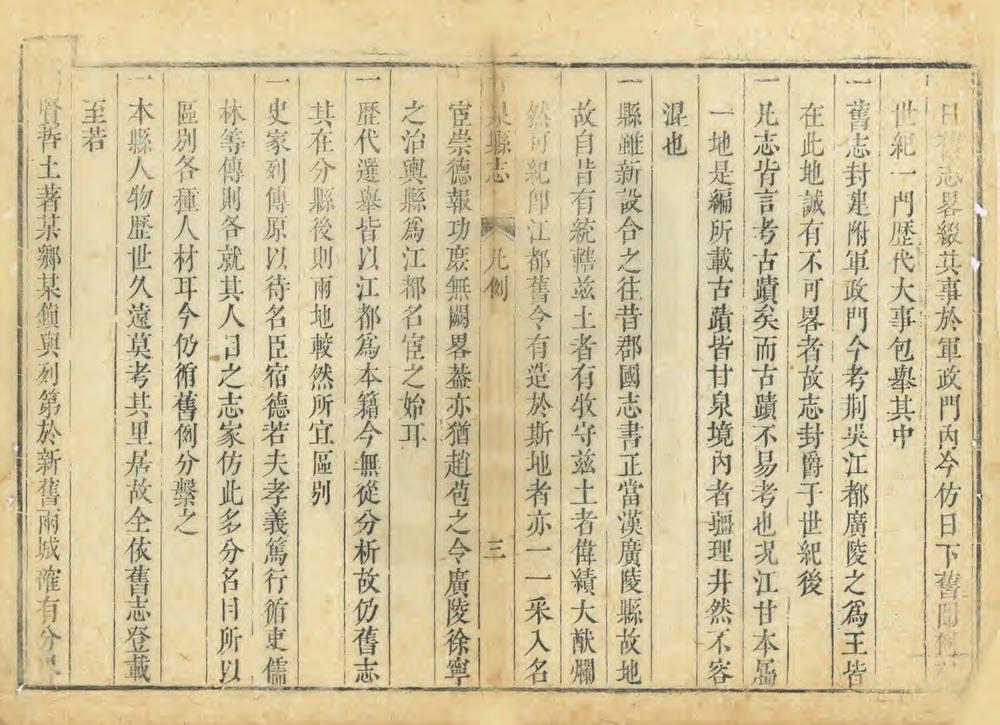 日舊志畧綴其事於軍政門內今仿日下舊聞例
世紀一門歷代大事包舉其中
一舊志封建附軍政門今考荆吳江都廣陵之爲王皆
在此地誠有不可畧者故志封爵于世紀後
一凡志皆言考古蹟矣而古蹟不易考也况江甘本屬
一地是編所載古蹟皆甘泉境內者疆理井然不容
混也
一縣雖新設合之往昔郡國志書正當漢廣陵縣故地
故自昔有統轄茲土者有牧守茲土者偉績大猷爛
然可紀卽江都舊令有造於斯地者亦一一采入名
泉縣志 凡例 三
宦崇德報功庶無闕畧葢亦猶趙苞之令廣陵徐寧
之治輿縣爲江都名宦之始耳
一歷代選舉皆以江都爲本籍今無從分析故仍舊志
其在分縣後則兩地較然所宜區别
一史家列傳原以待名臣宿德若夫孝義篤行循吏儒
林等傳則各就其人目之志家仿此多分名目所以
區别各種人材耳今仍循舊例分繫之
一本縣人物歷世久遠莫考其里居故全依舊志登載
至若
賢哲土著某鄉某鎮與列第於新舊兩城確有分